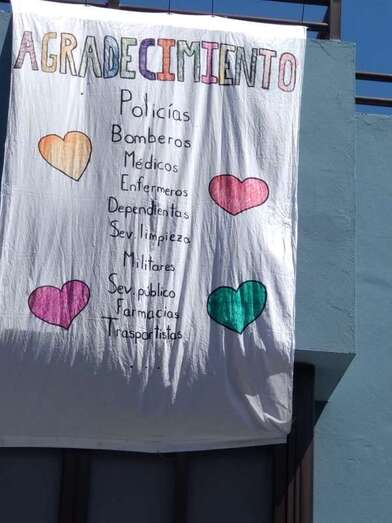 AGRADECIMIENTO
Policías
Bomberos
Médicos
Enfermeros
Dependientas
Sev. limpieza
Militares
Sev. público
Farmacias
Trasportistas
. . .